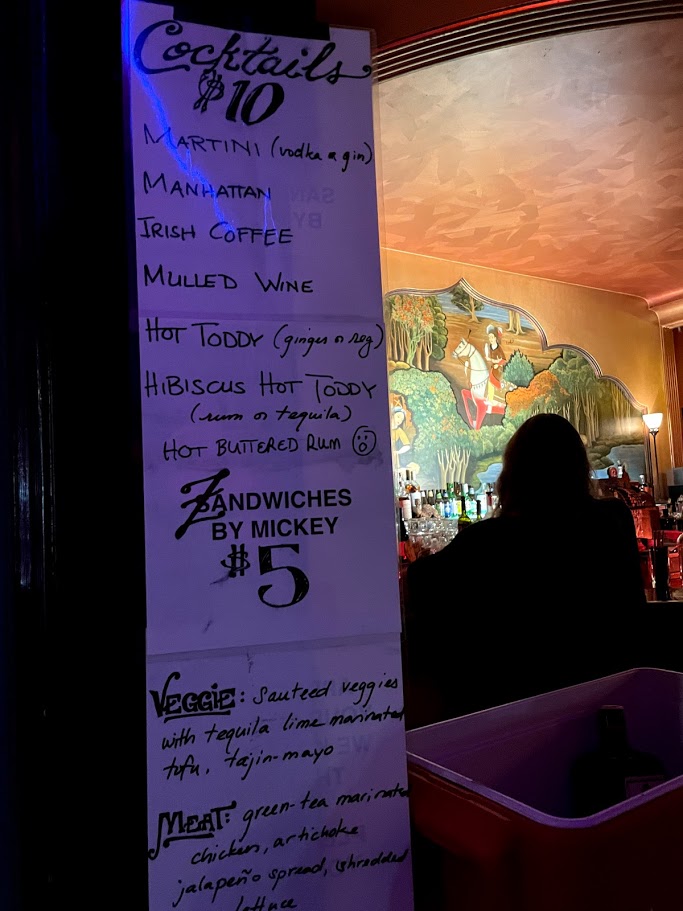 Cocktails
$10
MARTINI (vodka or gin)
MANHATTAN
IRISH COFFEE
MULLED WINE
HOT TODDY (ginger or reg)
HIBISCUS HOT TODDY
(rum or tequila)
HOT BUTTERED RUM
ZANDWICHES
BY MICKEY
$5
VEGGIE: sauteed veggies
with tequila lime marinated
tofu, tajin-mayo
MEAT: green-tea marinated
chicken, artichoke
jalapeño spread, shredded
lettuce